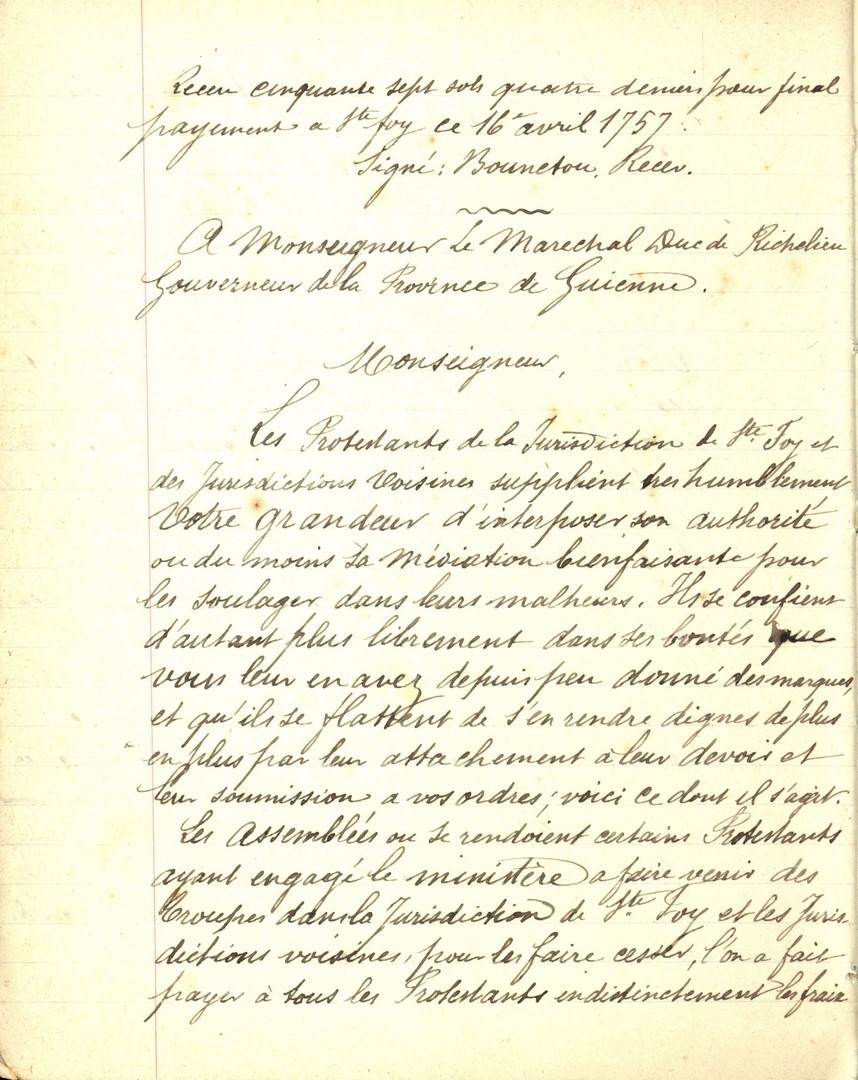 Receu cinquante sept sols quatre deniers pour final
payement a Ste foy ce 16e avril 1757.
Signé: Bounetou, Recer.
A Monseigneur Le Marechal Duc de Richelieu
Gouverneur de la Province de Guienne.
Monseigneur,
Les Protestants de la Jurisdiction de Ste. Foy et
des Jurisdictions Voisines supplient tres humblement
Votre grandeur d'interposer son authorité
ou du moins sa médiation bienfaisante pour
les soulager dans leurs malheurs. Ils se confient
d'autant plus librement dans ses bontés que
vous leur en avez depuis peu donné des marques,
et qu'ils se flattent de s'en rendre dignes de plus
en plus par leur attachement a leur devoir et
leur soumission a vos ordres; voici ce dont il s'agit.
Les Assemblées ou se rendoient certains Protestants
ayant engagé le ministère a faire venir des
troupes dans la Jurisdiction de Ste. Foy et les Juris-
dictions voisines, pour les faire cesser, l'on a fait
payer à tous les Protestants indistinctement les fraix